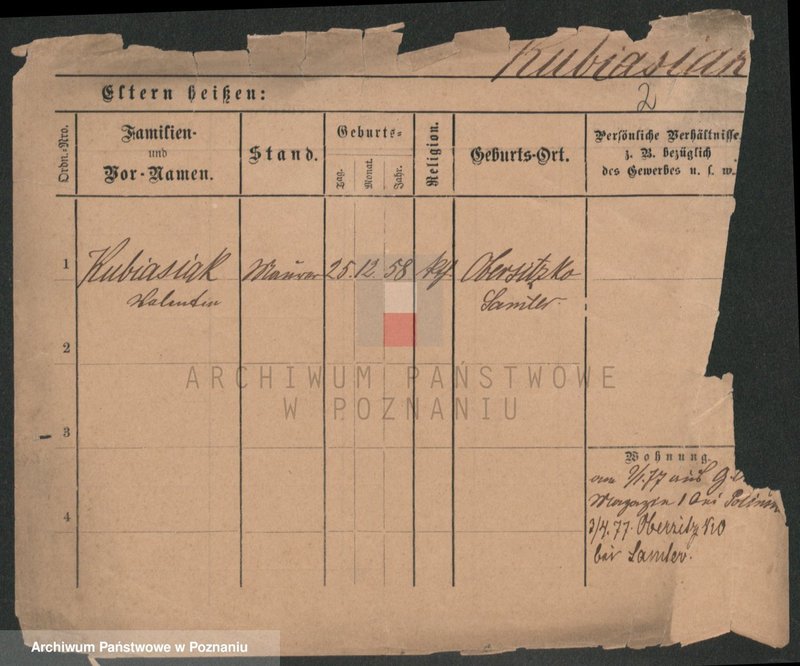 Kubiasiak
2
Eltern heißen:
Ordn.-Nro.
Familien-
und
Vor-Namen.
Stand.
Geburts-
Tag.
Monat.
Jahr.
Religion.
Geburts-Ort.
Persönliche Verhältnisse
z. B. bezüglich
des Gewerbes u. s. w.
1 Kubiasiak Maurer 25. 12 58 kth Obersitzko
Valentin Samter.
2
3
4
Wohnung.
am 9/1.77 aus
Magazin 1 bei
3/4.77. Obersitzko
bei Samter.
ARCHIWUM PAŃSTWOWE
W POZNANIU
Archiwum Państwowe w Poznaniu